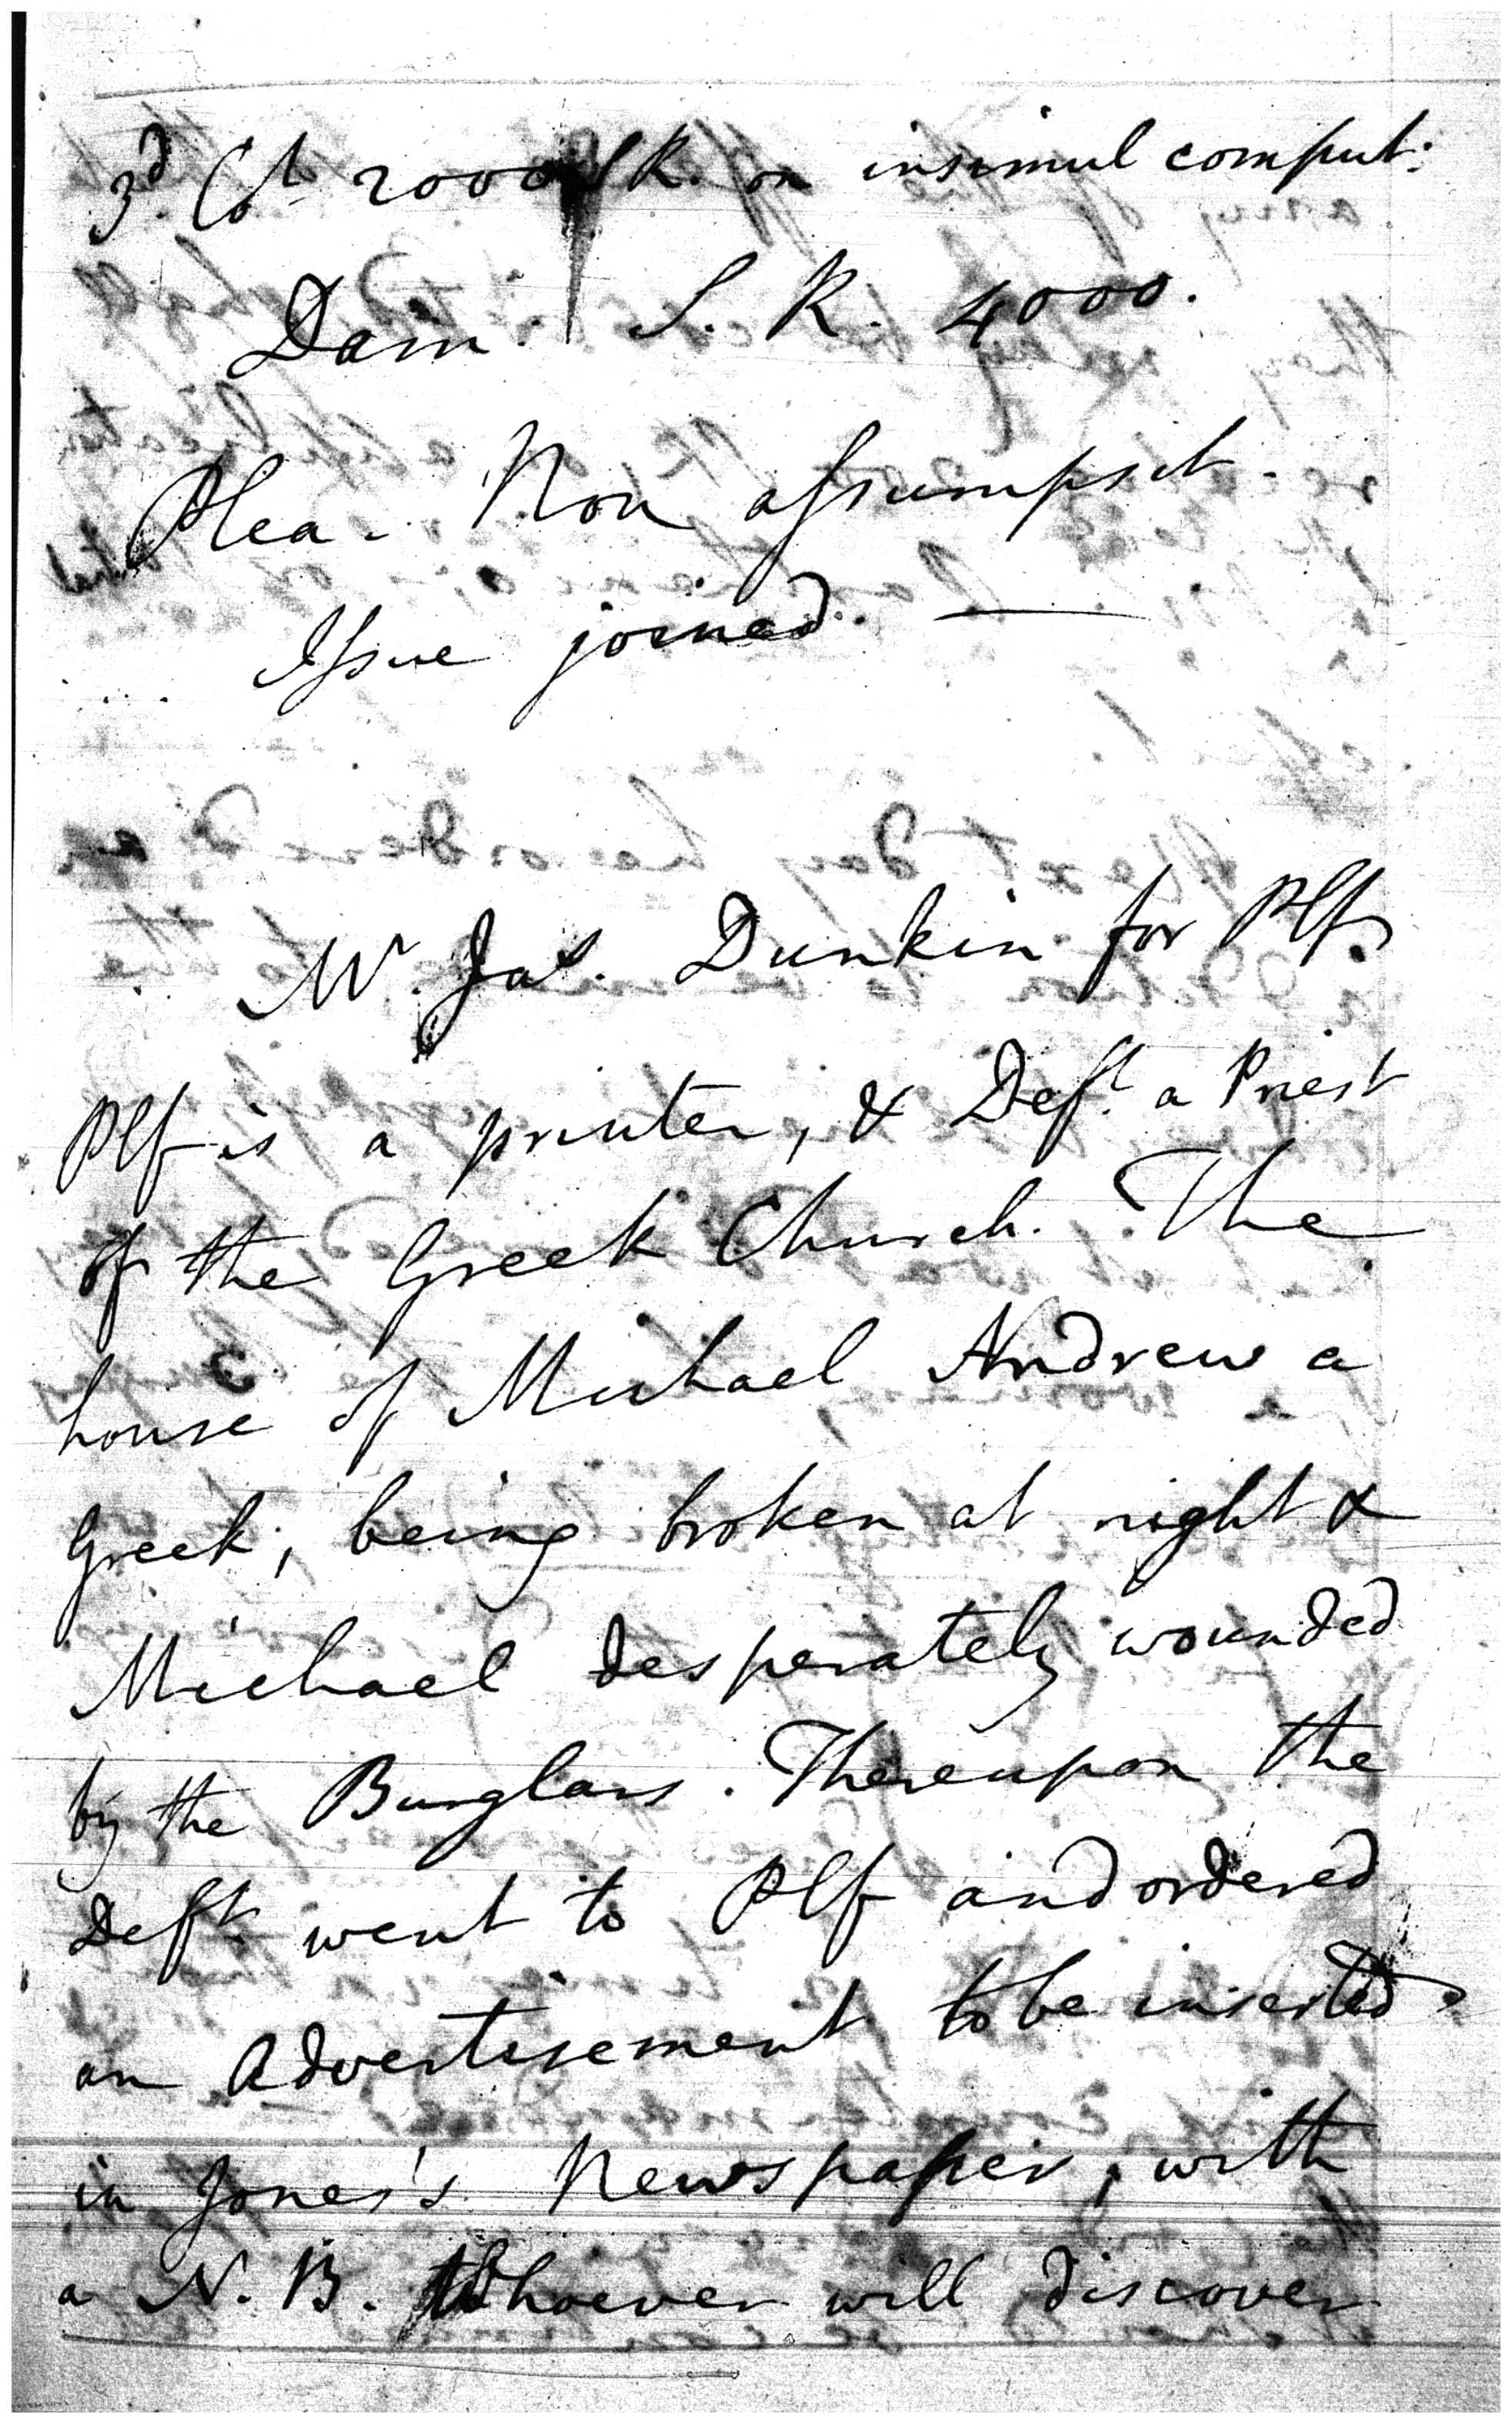 3d Ct 2000 SR. on insimul comput:
Dam. S. R. 4000.
Plea. Non assumpsit.
Issue joined. —
Mr. Jas. Dunkin for Plf.
Plf is a printer, & Deft. a Priest
of the Greek Church. The
house of Michael Andrew a
Greek, being broken at night &
Michael desperately wounded
by the Burglars. Thereupon the
Deft. went to Plf and ordered
an Advertisement to be inserted
in Jones's Newspaper, with
a N. B. Whoever will discover